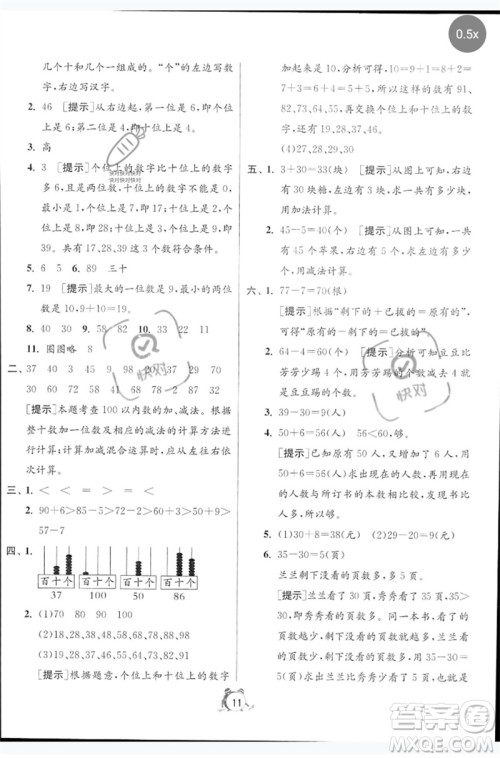 0.5x
几个十和几个一组成的。“个”的左边写数
字,右边写汉字。
2. 46 [提示]从右边起,第一位是个位,个位上
是6;第二位是十位,十位上是4。
3. 高
4. 3 [提示]个位上的数字比十位上的数字
多6,两位数十位上的数字不能是0,最小
是1,即个位上是7;十位上是2,即个位上
是8;十位上是3,即个位上是9;即17,28,
39。共有17,28,39这3个数符合条件。
5. 6 5 6. 89 三十
7. [提示]最大的一位数是9,最小的两位
数是10,9+10=19。
8. 40 30 9. 58 82 10. 33 33
11. 圈圈略 8
二、37 40 77 45 98 20 37 70
30 60 38 72 58 71 4 68
[提示]本题考查100以内数的加、减法。根
据整十数加一位数及相应的减法的计算方法
和两位数加一位数及减法的计算方法进行计
算即可。计算加减混合运算时,应从左往右
依次计算。
三、1. < < = > < <
2. 90+6>85-5>72-2>60+3>
57-7
四、1.
百十个 百十个 百十个 百十个
37 100 50 86
2. (1)70 80 90 100
(2)18,28,38,48,58,68,78,88,98
(3)19,28,37,46,55,64,73,82,91
[提示]根据题意,个位上与十位上的数字
加起来是10,分析可得,10=9+1=8+2=
7+3=6+4=5+5,所以这样的数有91,
82,73,64,55,再交换个位和十位上的数
字,还有19,28,37,46。
(4)19,28,37,46
五、1. 3+30=33(块) [提示]从图上可知,左
边有3块,右边有30块,求一共有多少块,
用加法计算。
2. 45-5=40(个) [提示]从图上可知,一共
有45个苹果,右边有5个,求左边有多少
个,用减法计算。
六、1. 77-7=70(根)
[提示]根据“剩下的+已拔的=原有的”
可知:原有的-已拔的=剩下的。
2. 64-4=60(个) [提示]分析可知豆豆比
芳芳少踢4个,用芳芳踢的个数减去4个
即可。
3. 39-30=9(人)
4. 50+6=56(本) 56<60,不够。
[提示]已知原有50人,又转来6人,用加
法求出现在的人数为56人,再将现在的
人数与所订书的本数进行比较,可知
不够。
5. (1)30+8=38(元) (2)29-20=9(元)
6. 35-30=5(页)
兰兰剩下没看的页数多,多5页。
[提示]兰兰看了30页,秀秀看了35页,
求出秀秀比兰兰多看了5页,即秀秀看的
页数比兰兰看的页数多。同一本书,一共
的页数相同,看了的页数越多,剩下没看
的页数越少,故兰兰剩下没看的页数多,
多5页。
11
快对
快对